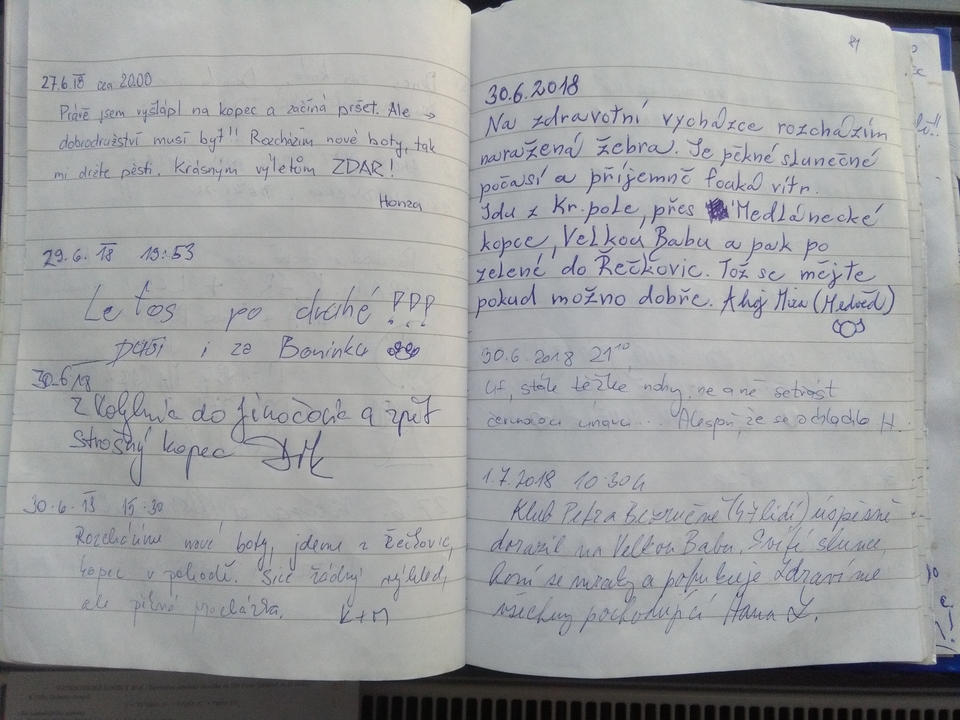 27.6.18 cca 20.00
Právě jsem vyšlápl na kopec a začíná pršet. Ale →
dobrodružství musí být!! Rozcházím nové boty, tak
mi držte pěsti. Krásným výletům ZDAR!
Honza
29.6.18 19:53
Letos po druhé !!!
Daši i za Boninku
30.6.18
z Kohoutovic do Jinačovic a zpět
strašný kopec
30.6.18 15:30
Rozcházíme nové boty, jdeme z Řečkovic,
kopec v pohodě. Sice žádný výhled,
ale pěkná procházka.
K+M
81
30.6.2018
Na zdravotní vycházce rozcházím
naražená žebra. Je pěkné slunečné
počasí a příjemně fouká vítr.
Jdu z Kr. pole, přes Medlánecké
kopce, Velkou Babu a pak po
zelené do Řečkovic. Tož se mějte
pokud možno dobře. Ahoj Míra (Medvěd)
30.6.2018 21¹⁰
Uf, stále těžké nohy, ne a ně setřást
únava... Alespoň, že se ochladilo H.
1.7.2018 10:30h
Klub Petra Bezruče (47 lidí) úspěšně
dorazil na Velkou Babu. Svítí slunce,
honí se mraky a pofukuje. Zdravíme
všechny pochodující Hana Z.